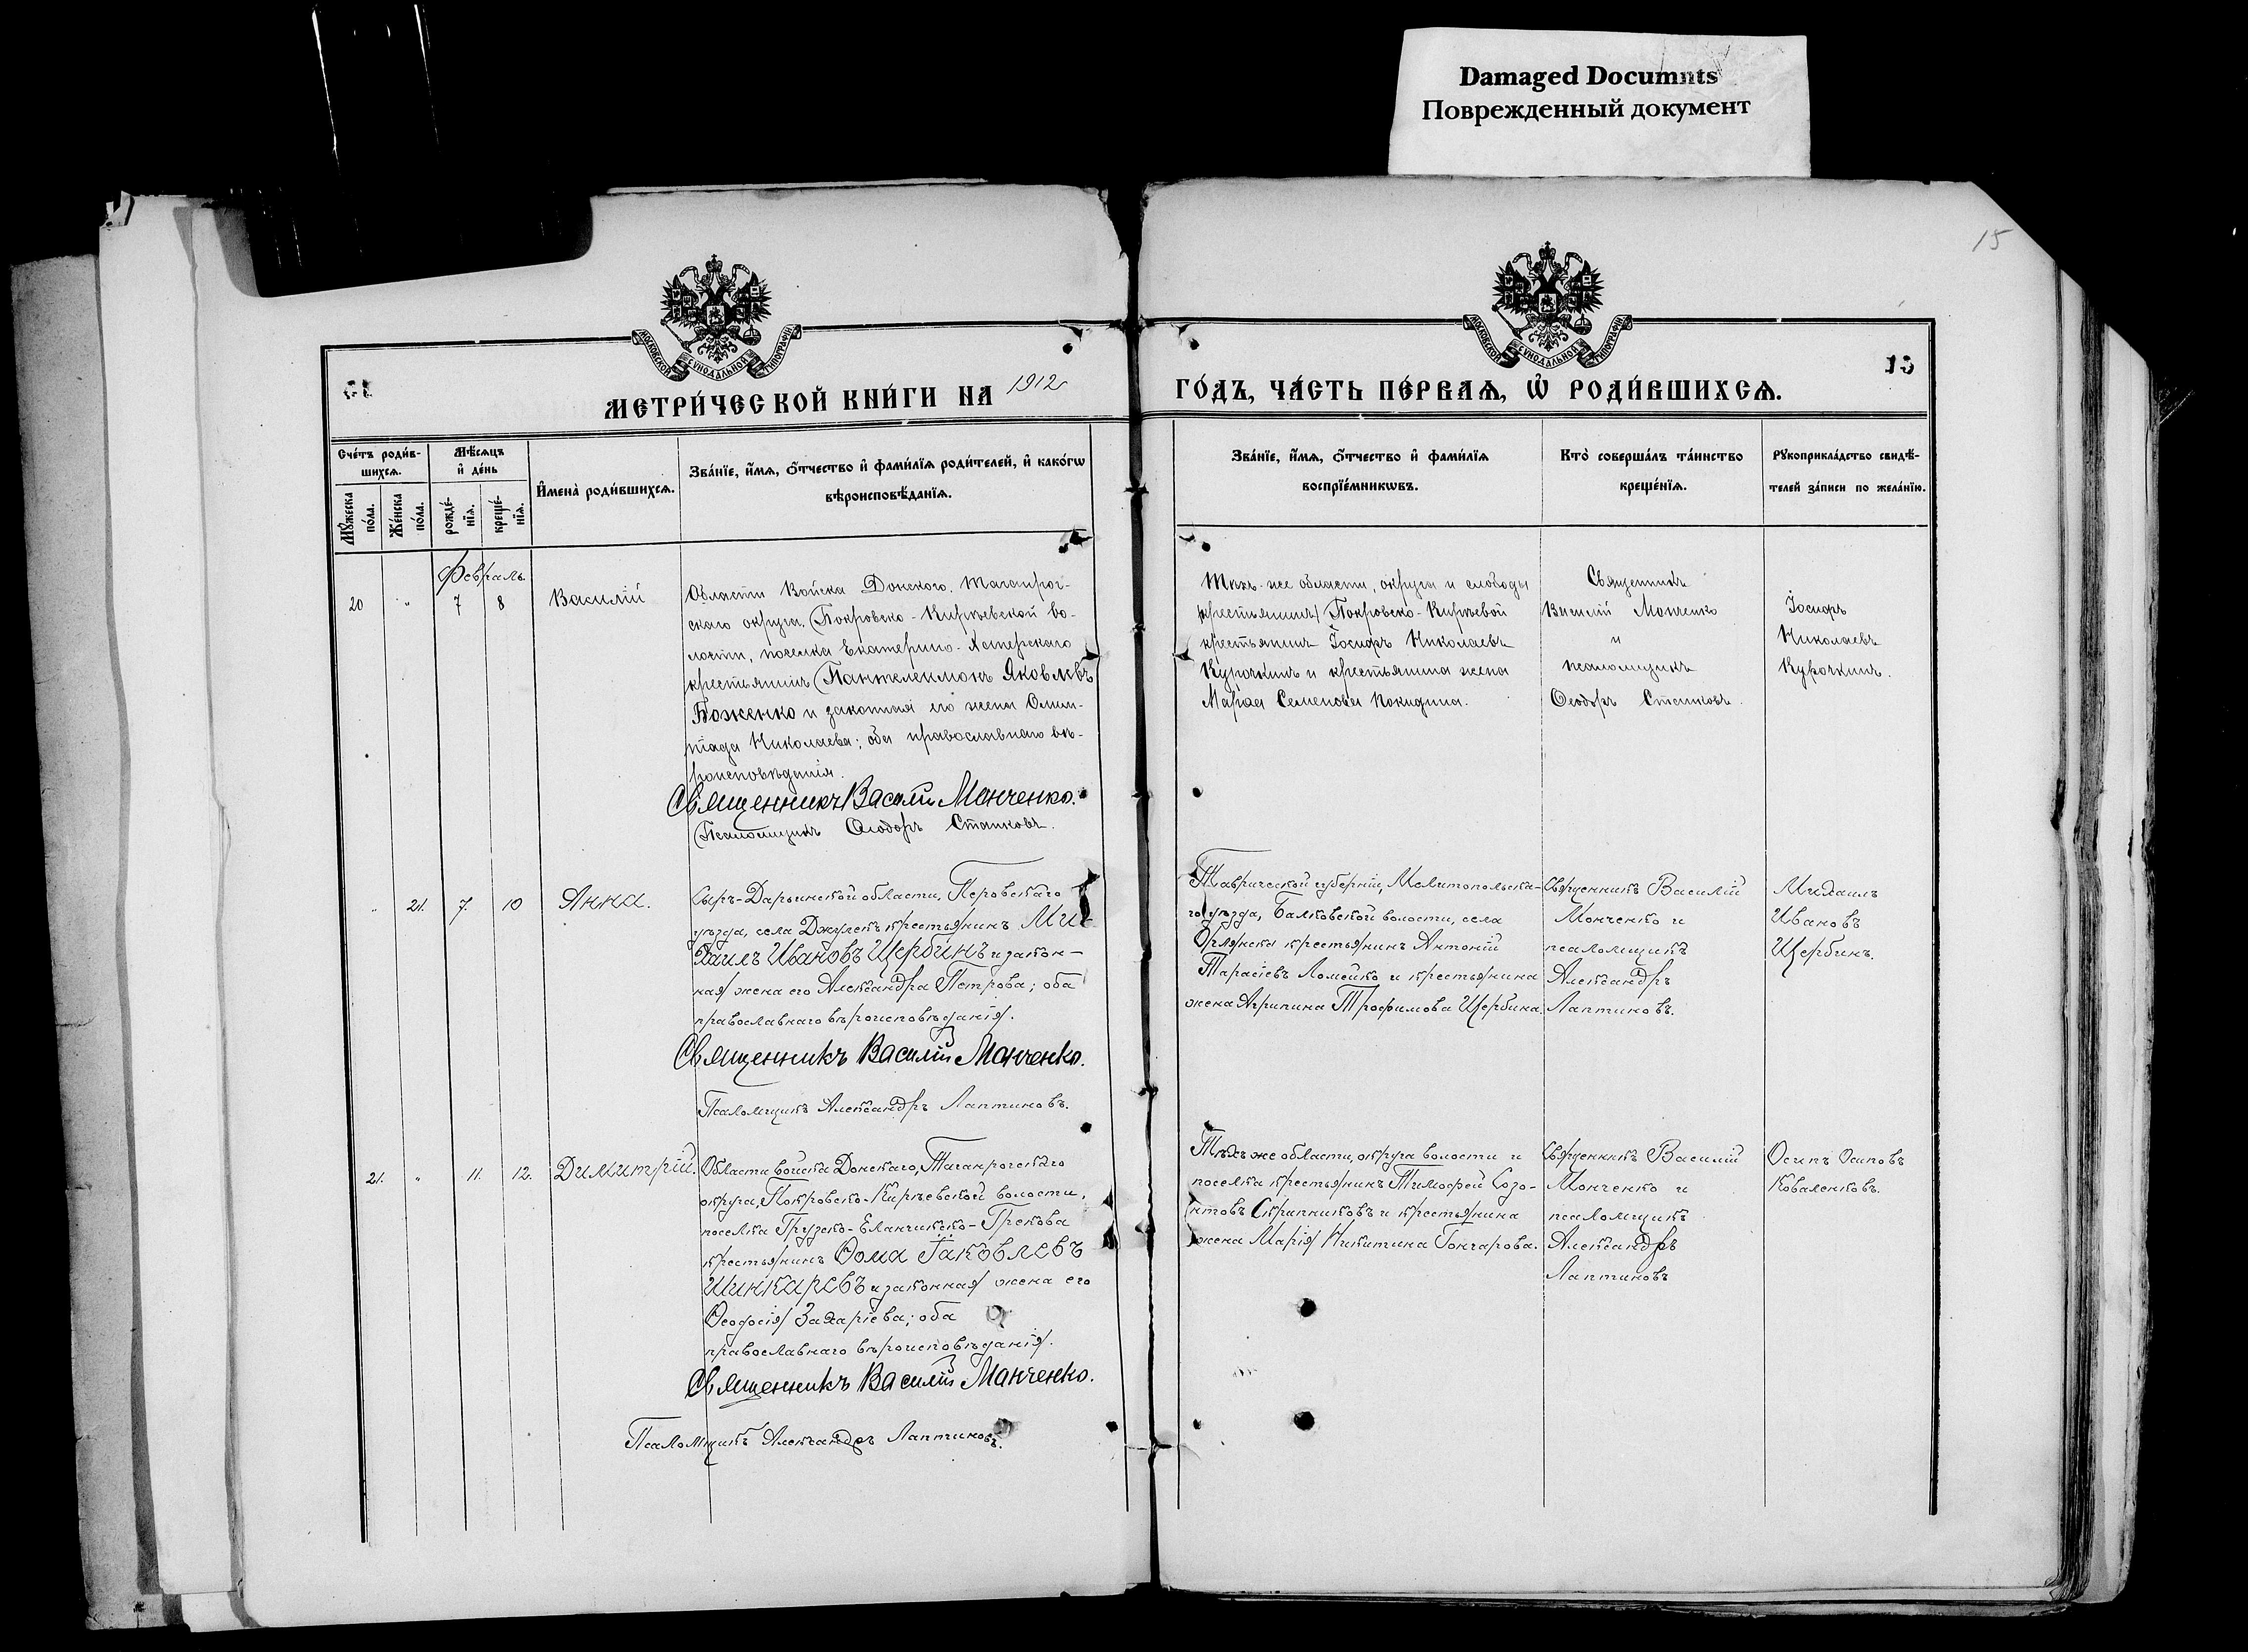 Damaged Documnts
Поврежденный документ
15
МОСКОВСКОЙ СѴНОДАЛЬНОЙ ТИПОГРАФІИ
МОСКОВСКОЙ СѴНОДАЛЬНОЙ ТИПОГРАФІИ
МЕТРИ́ЧЕСКОЙ КНИ́ГИ НА 1912
ГО́ДЪ, ЧА́СТЬ ПЕ́РВАѦ, Ѡ҆ РОДИ́ВШИХСѦ.
Сче́тъ роди́в-
шихсѧ.
Мꙋ́жеска
по́ла.
Же́нска
по́ла.
Мѣ́сѧцъ
и҆ де́нь
рожде́-
нїѧ.
креще́-
нїѧ.
И҆мена̀ роди́вшихсѧ.
Зва́нїе, и҆́мѧ, ѻ҆́тчество и҆ фами́лїѧ роди́телей, и҆ како́гѡ
вѣроисповѣ́данїѧ.
Зва́нїе, и҆́мѧ, ѻ҆́тчество и҆ фами́лїѧ
воспрїе́мникѡвъ.
Кто̀ соверша́лъ та́инство
креще́нїѧ.
Рꙋкоприкла́дство свидѣ́-
телей за́писи по жела́нїю.
Февраль.
20 " 7 8 Василій
Области Войска Донского, Таганрог-
скаго округа, Покровско-Кирѣевской во-
лости, поселка Екатерино-Хоперскаго
крестьянинъ Пантелеимонъ Яковлевъ
Боженко и законная его жена Олим-
піада Николаева; оба православнаго вѣ-
роисповѣданія.
Священникъ Василій Манченко.
Псаломщикъ Ѳеодоръ Станковъ.
Тѣхъ-же области, округа и слободы
крестьянинъ Покровско-Кирѣевой
крестьянинъ Іосифъ Николаевъ
Курочкинъ и крестьянина жена
Марѳа Семенова Покидина.
Священникъ
Василій Манченко
и
псаломщикъ
Ѳеодоръ Станковъ.
Іосифъ
Николаевъ
Курочкинъ.
" 21. 7. 10 Анна.
Сыръ-Дарьинской области, Перовскаго
уѣзда, села Джулекъ крестьянинъ Ми-
хаилъ Ивановъ Щербинъ и закон-
ная жена его Александра Петрова; оба
православнаго вѣроисповѣданія.
Священникъ Василій Манченко.
Псаломщикъ Александръ Лаптиновъ.
Таврической губерніи, Мелитопольска-
го уѣзда, Балковской волости, села
Орлянска крестьянинъ Антоній
Тарасіевъ Ломейко и крестьянина
жена Агрипина Трофимова Щербина.
Священникъ Василій
Манченко и
псаломщикъ
Александръ
Лаптиновъ.
Михаилъ
Ивановъ
Щербинъ.
21. " 11. 12. Димитрій.
Области войска Донскаго, Таганрогскаго
округа, Покровско-Кирѣевской волости,
поселка Грузско-Еланчикско-Грекова
крестьянинъ Ѳома Іаковлевъ
Шинкаревъ и законная жена его
Ѳеодосія Захаріева; оба
православнаго вѣроисповѣданія.
Священникъ Василій Манченко.
Псаломщикъ Александръ Лаптиновъ.
Тѣхъ же области, округа волости и
поселка крестьянинъ Тимофей Созо-
нтовъ Скрипниковъ и крестьянина
жена Марія Никитина Гончарова.
Священникъ Василій
Манченко и
псаломщикъ
Александръ
Лаптиновъ
Осипъ Осиповъ
Коваленковъ.